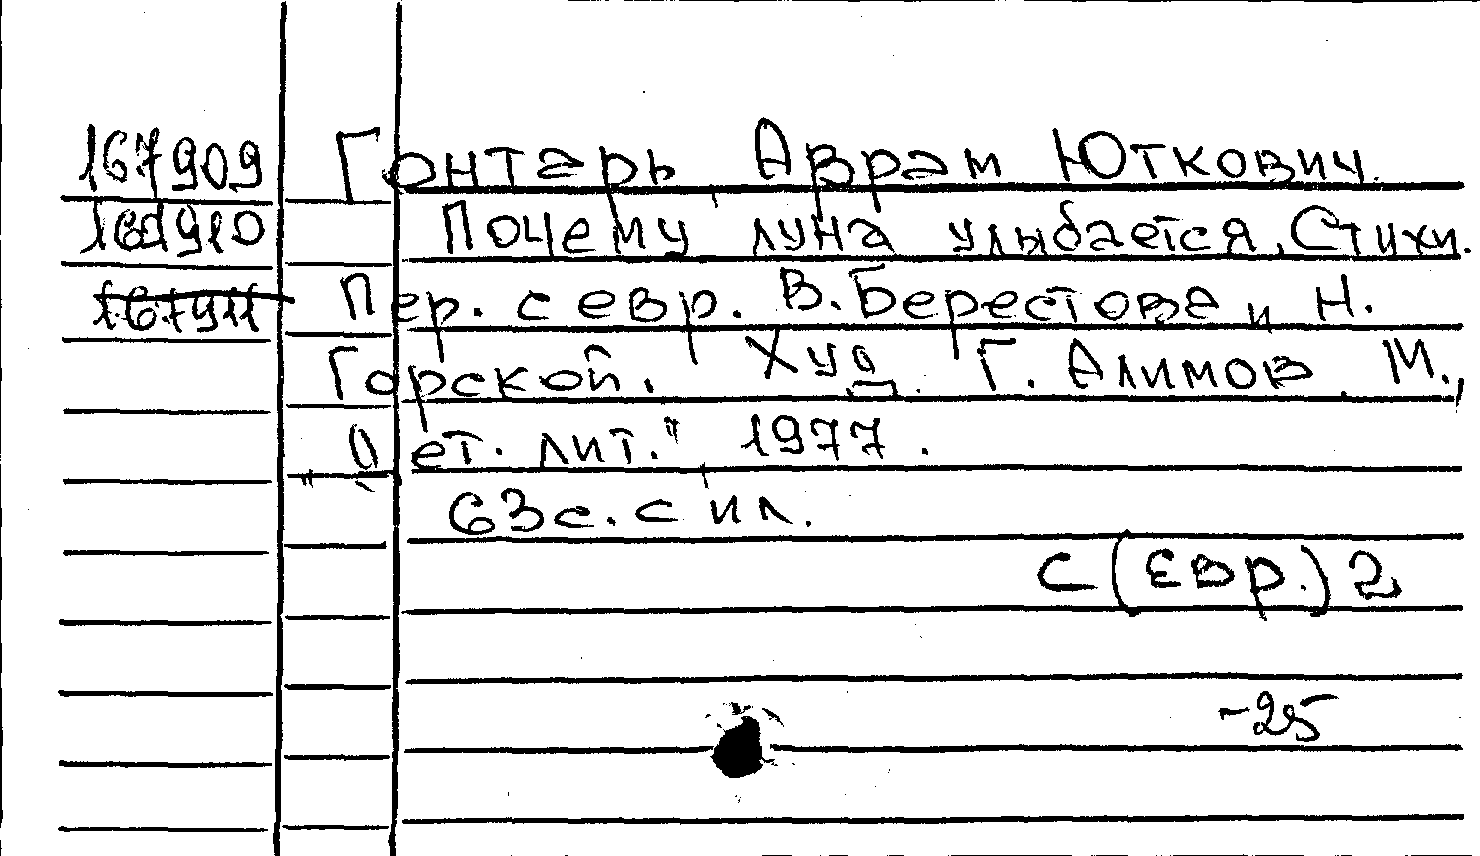 167909 Гонтарь Аврам Юткович.
167910 Почему луна улыбается. Стихи.
167911 Пер. с евр. В. Берестова и Н.
Горской. Худ. Г. Алимов. М.,
„Дет. лит." 1977.
63с. с ил.
С(Евр.)2
-25